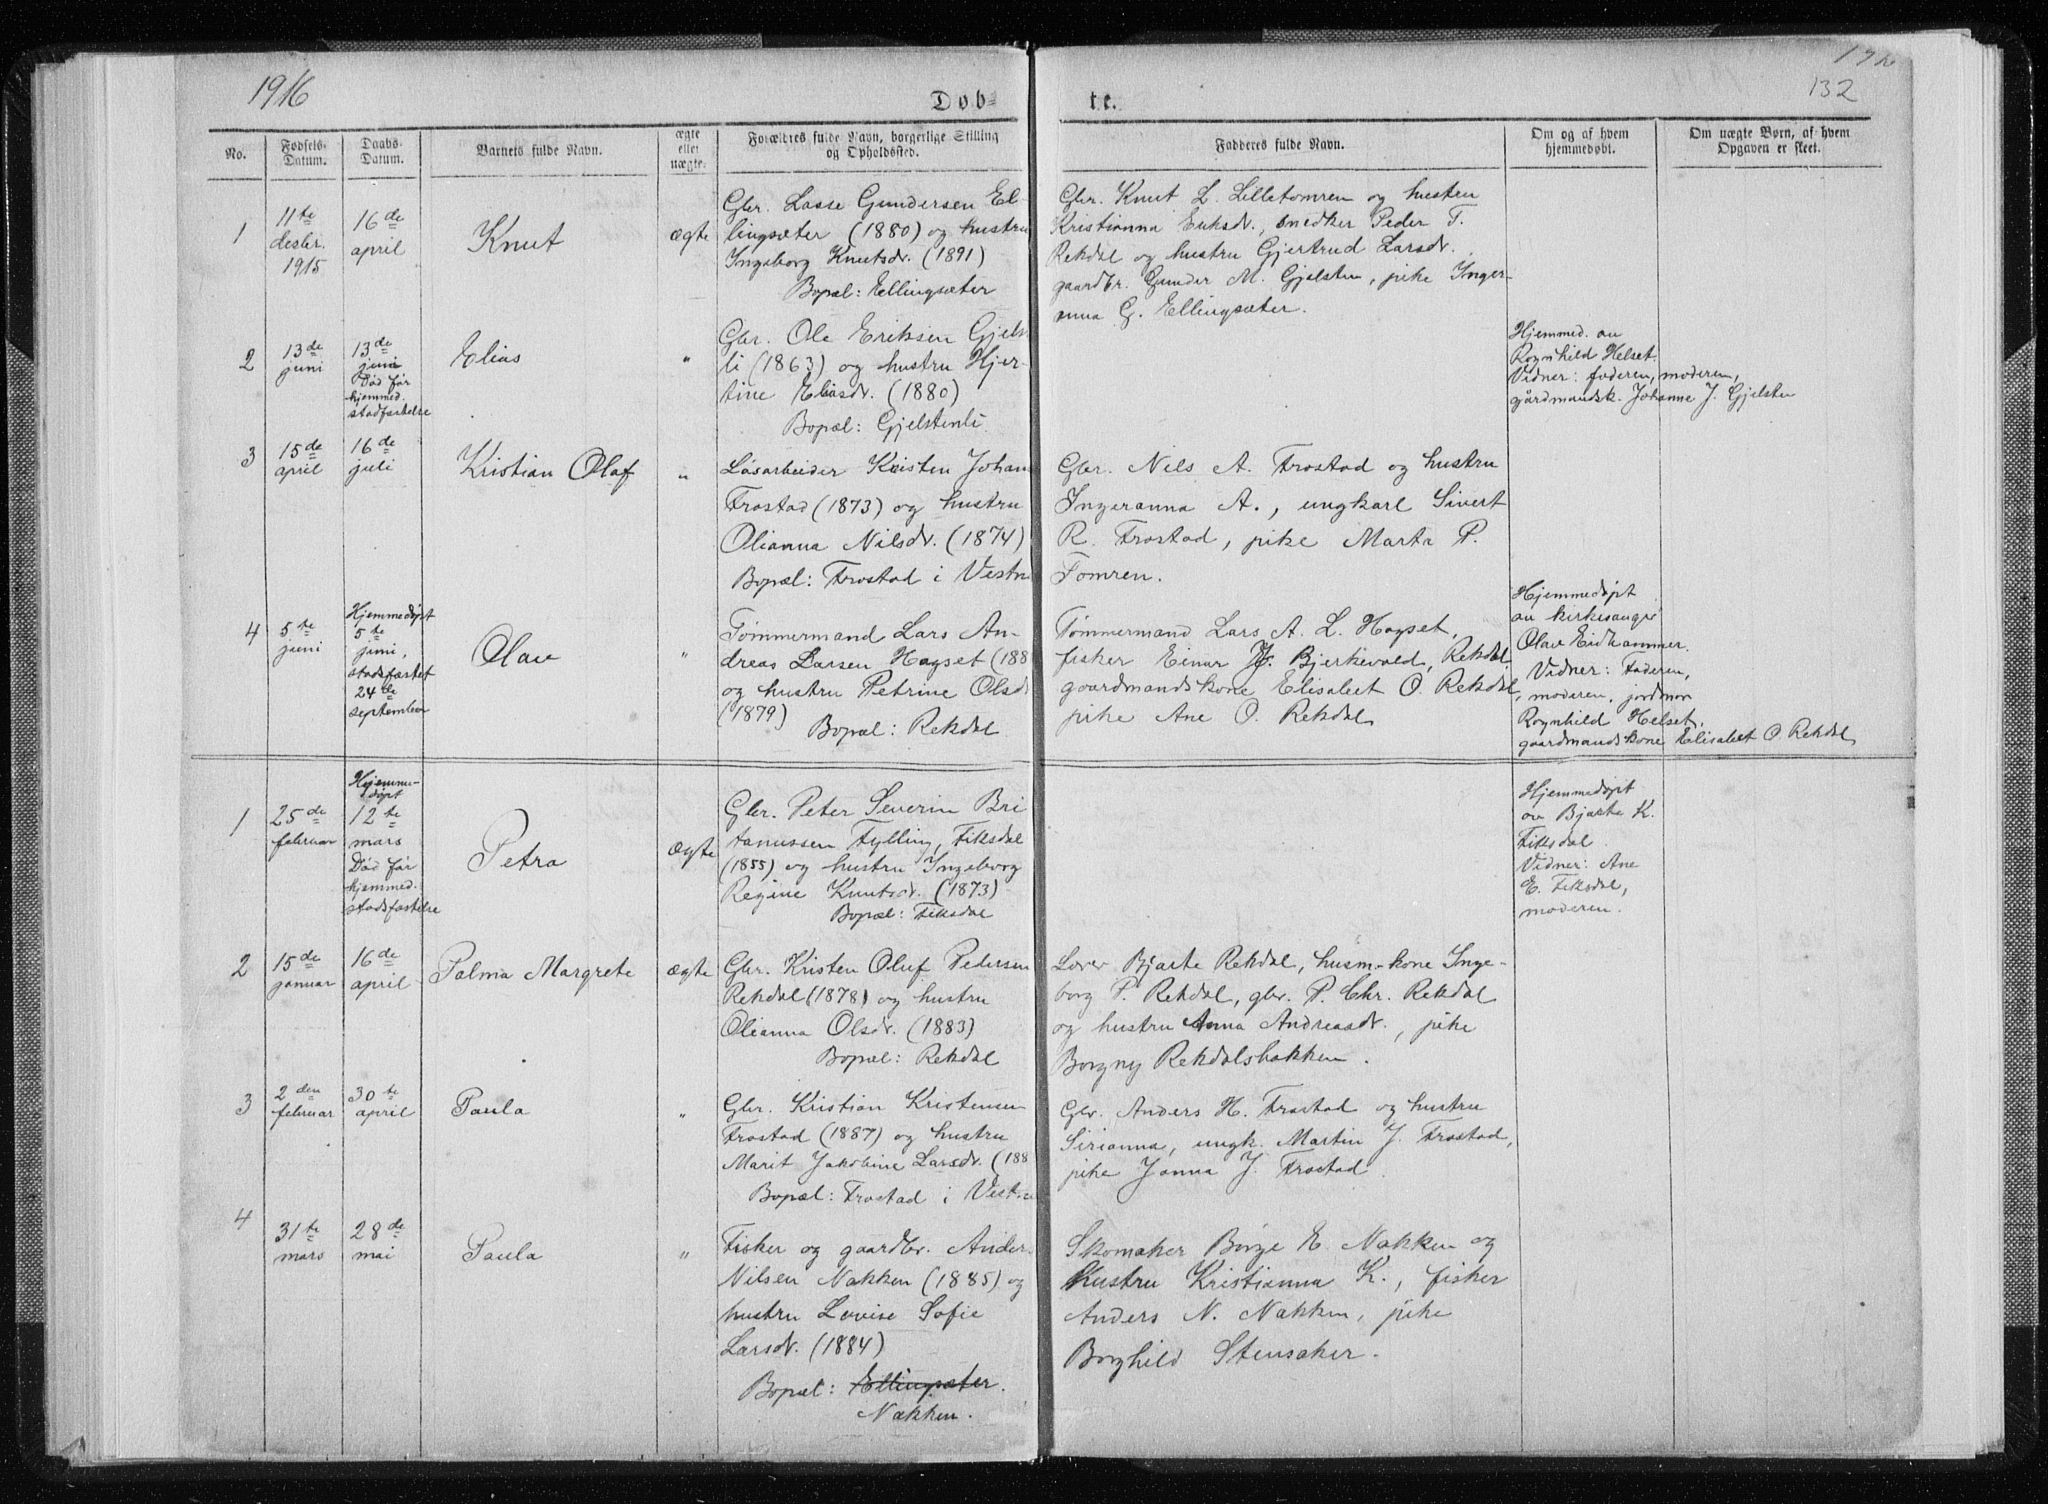 1916
132
Døb-
te.
No.
Fødsels-
Datum.
Daabs-
Datum.
Barnets fulde Navn.
ægte
eller
uægte.
Forældres fulde Navn, borgerlige Stilling
og Opholdssted.
Faddernes fulde Navn.
Om og af hvem
hjemmedøbt.
Om uægte Børn, af hvem
Opgaven er skeet.
1
11te
desbr.
1915
16de
april
Knut
ægte
Gbr. Lasse Gundersen El-
lingsæter (1880) og hustru
Ingeborg Knutsdr. (1891)
Bopæl: Ellingsæter
Gbr. Knut L. Lilletomren og hustru
Kristianna Eriksdr., snedker Peder T.
Rekdal og hustru Gjertrud Larsdr.
gaardbr. Gunder M. Gjelsten, pike Inger-
anna G. Ellingsæter.
2
13de
juni
13de
juni
Død før
hjemmed.
stadfæstelse
Elias
"
Gbr. Ole Eriksen Gjelst
li (1863) og hustru Hjer-
tine Eliasdr. (1880)
Bopæl: Gjelstenli
Hjemmed. av
Ragnhild Helset.
Vidner: faderen, moderen,
gårdmandsk. Johanne J. Gjelsten
3
15de
april
16de
juli
Kristian Olaf
"
Løsarbeider Kristen Johan
Frostad (1873) og hustru
Olianna Nilsdr. (1874)
Bopæl: Frostad i Vestn
Gbr. Nils A. Frostad og hustru
Ingeranna A., ungkarl Sivert
R. Frostad, pike Marta P.
Tomren.
4
5te
juni
Hjemmedøpt
5te
juni,
stadfæstet
24de
september
Olav
"
Tømmermand Lars An-
dreas Larsen Hagset (188
og hustru Petrine Olsd
(1879)
Bopæl: Rekdal
Tømmermand Lars A. L. Hagset,
fisker Einar J. Bjerkevold, Rekdal
gaardmandskone Elisabet O. Rekdal,
pike Ane O. Rekdal
Hjemmedøpt
av kirkesanger
Olav Eidhammer.
Vidner: Faderen,
moderen, jordmor
Ragnhild Helset,
gaardmandskone Elisabet O. Rekdal
1
25de
februar
Hjemme-
døpt
12te
mars
Død før
hjemmed.
stadsfæstelse
Petra
ægte
Gbr. Peter Severin Bri
tanussen Fylling, Fiksdal
(1855) og hustru Ingeborg
Regine Knutsdr. (1873)
Bopæl: Fiksdal
Hjemmedøpt
av Bjarte K.
Fiksdal
Vidner: Ane
E. Fiksdal,
moderen.
2
15de
januar
16de
april
Palma Margrete
ægte
Gbr. Kristen Oluf Pedersen
Rekdal (1878) og hustru
Olianna Olsdr. (1883)
Bopæl: Rekdal
Lærer Bjarte Rekdal, husm-kone Inge-
borg P. Rekdal, gbr. P. Chr. Rekdal
og hustru Anna Andreasdr., pike
Borgny Rekdalsbakken.
3
2den
februar
30te
april
Paula
"
Gbr. Kristian Kristensen
Frostad (1887) og hustru
Marit Jakobine Larsdr. (188
Bopæl: Frostad i Vestn
Gbr. Anders H. Frostad og hustru
Sirianna, ungk. Martin J. Frostad,
pike Janna J. Frostad
4
31te
mars
28de
mai
Paula
"
Fisker og gaardbr. Anders
Nilsen Nakken (1885) og
hustru Lovise Sofie
Larsdr. (1884)
Bopæl: Ellingsæter.
Nakken.
Skomaker Børge E. Nakken og
hustru Kristianna K., fisker
Anders N. Nakken, pike
Borghild Stensaker.